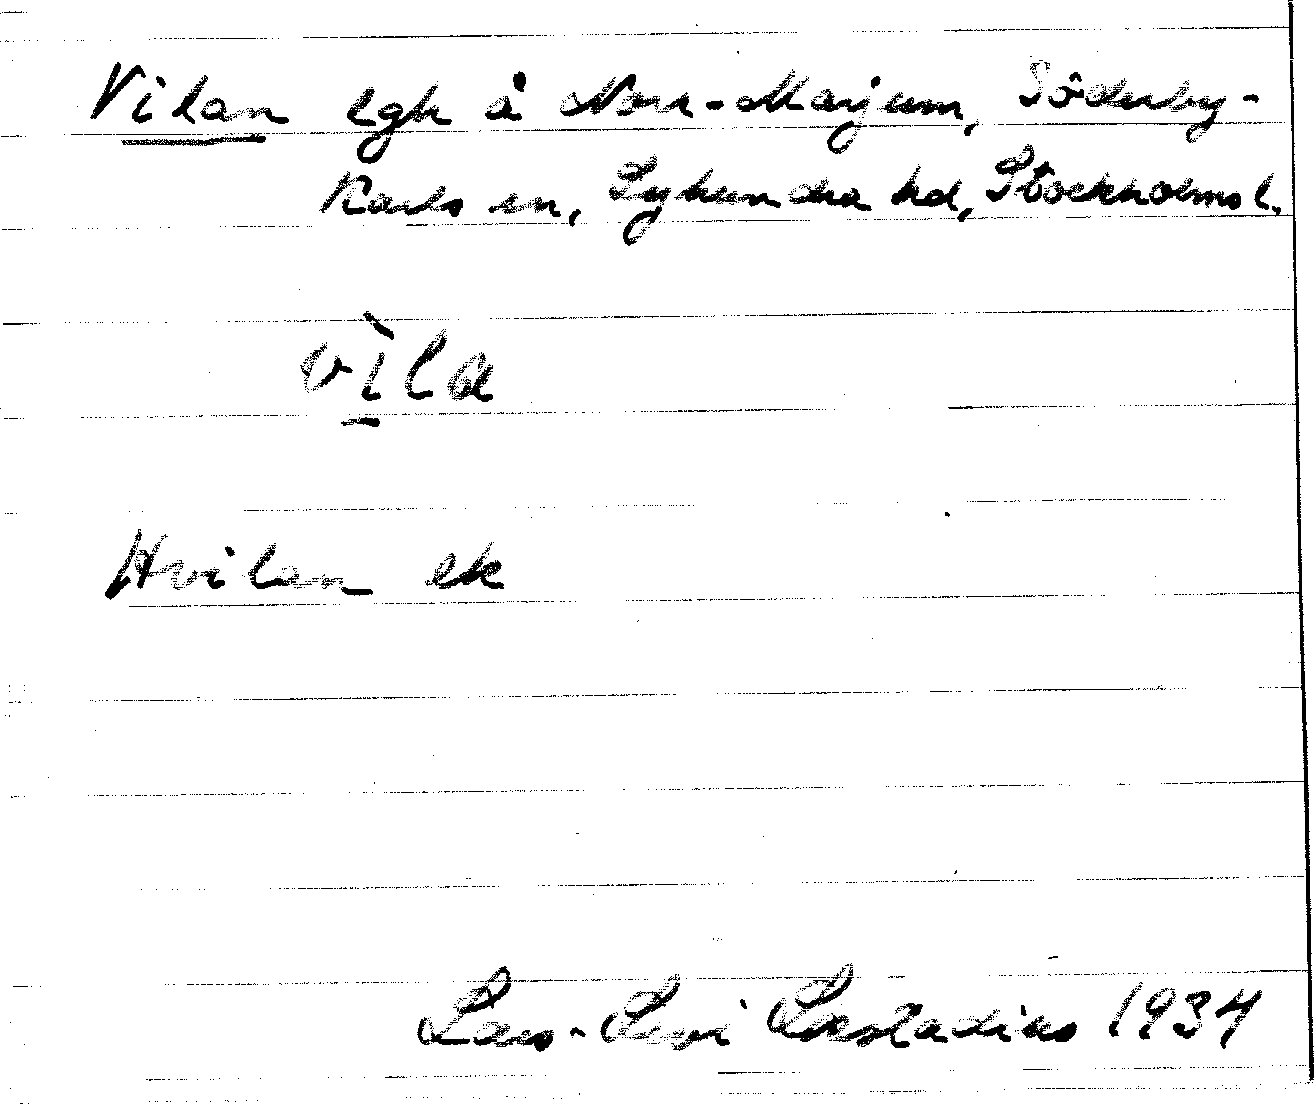 Vilan lgh å Norr-Marjum, Söderby-
Karls sn, Lyhundra hd, Stockholms l.
vì̱la
Hvilan ek
Lars-Levi Læstadius 1934